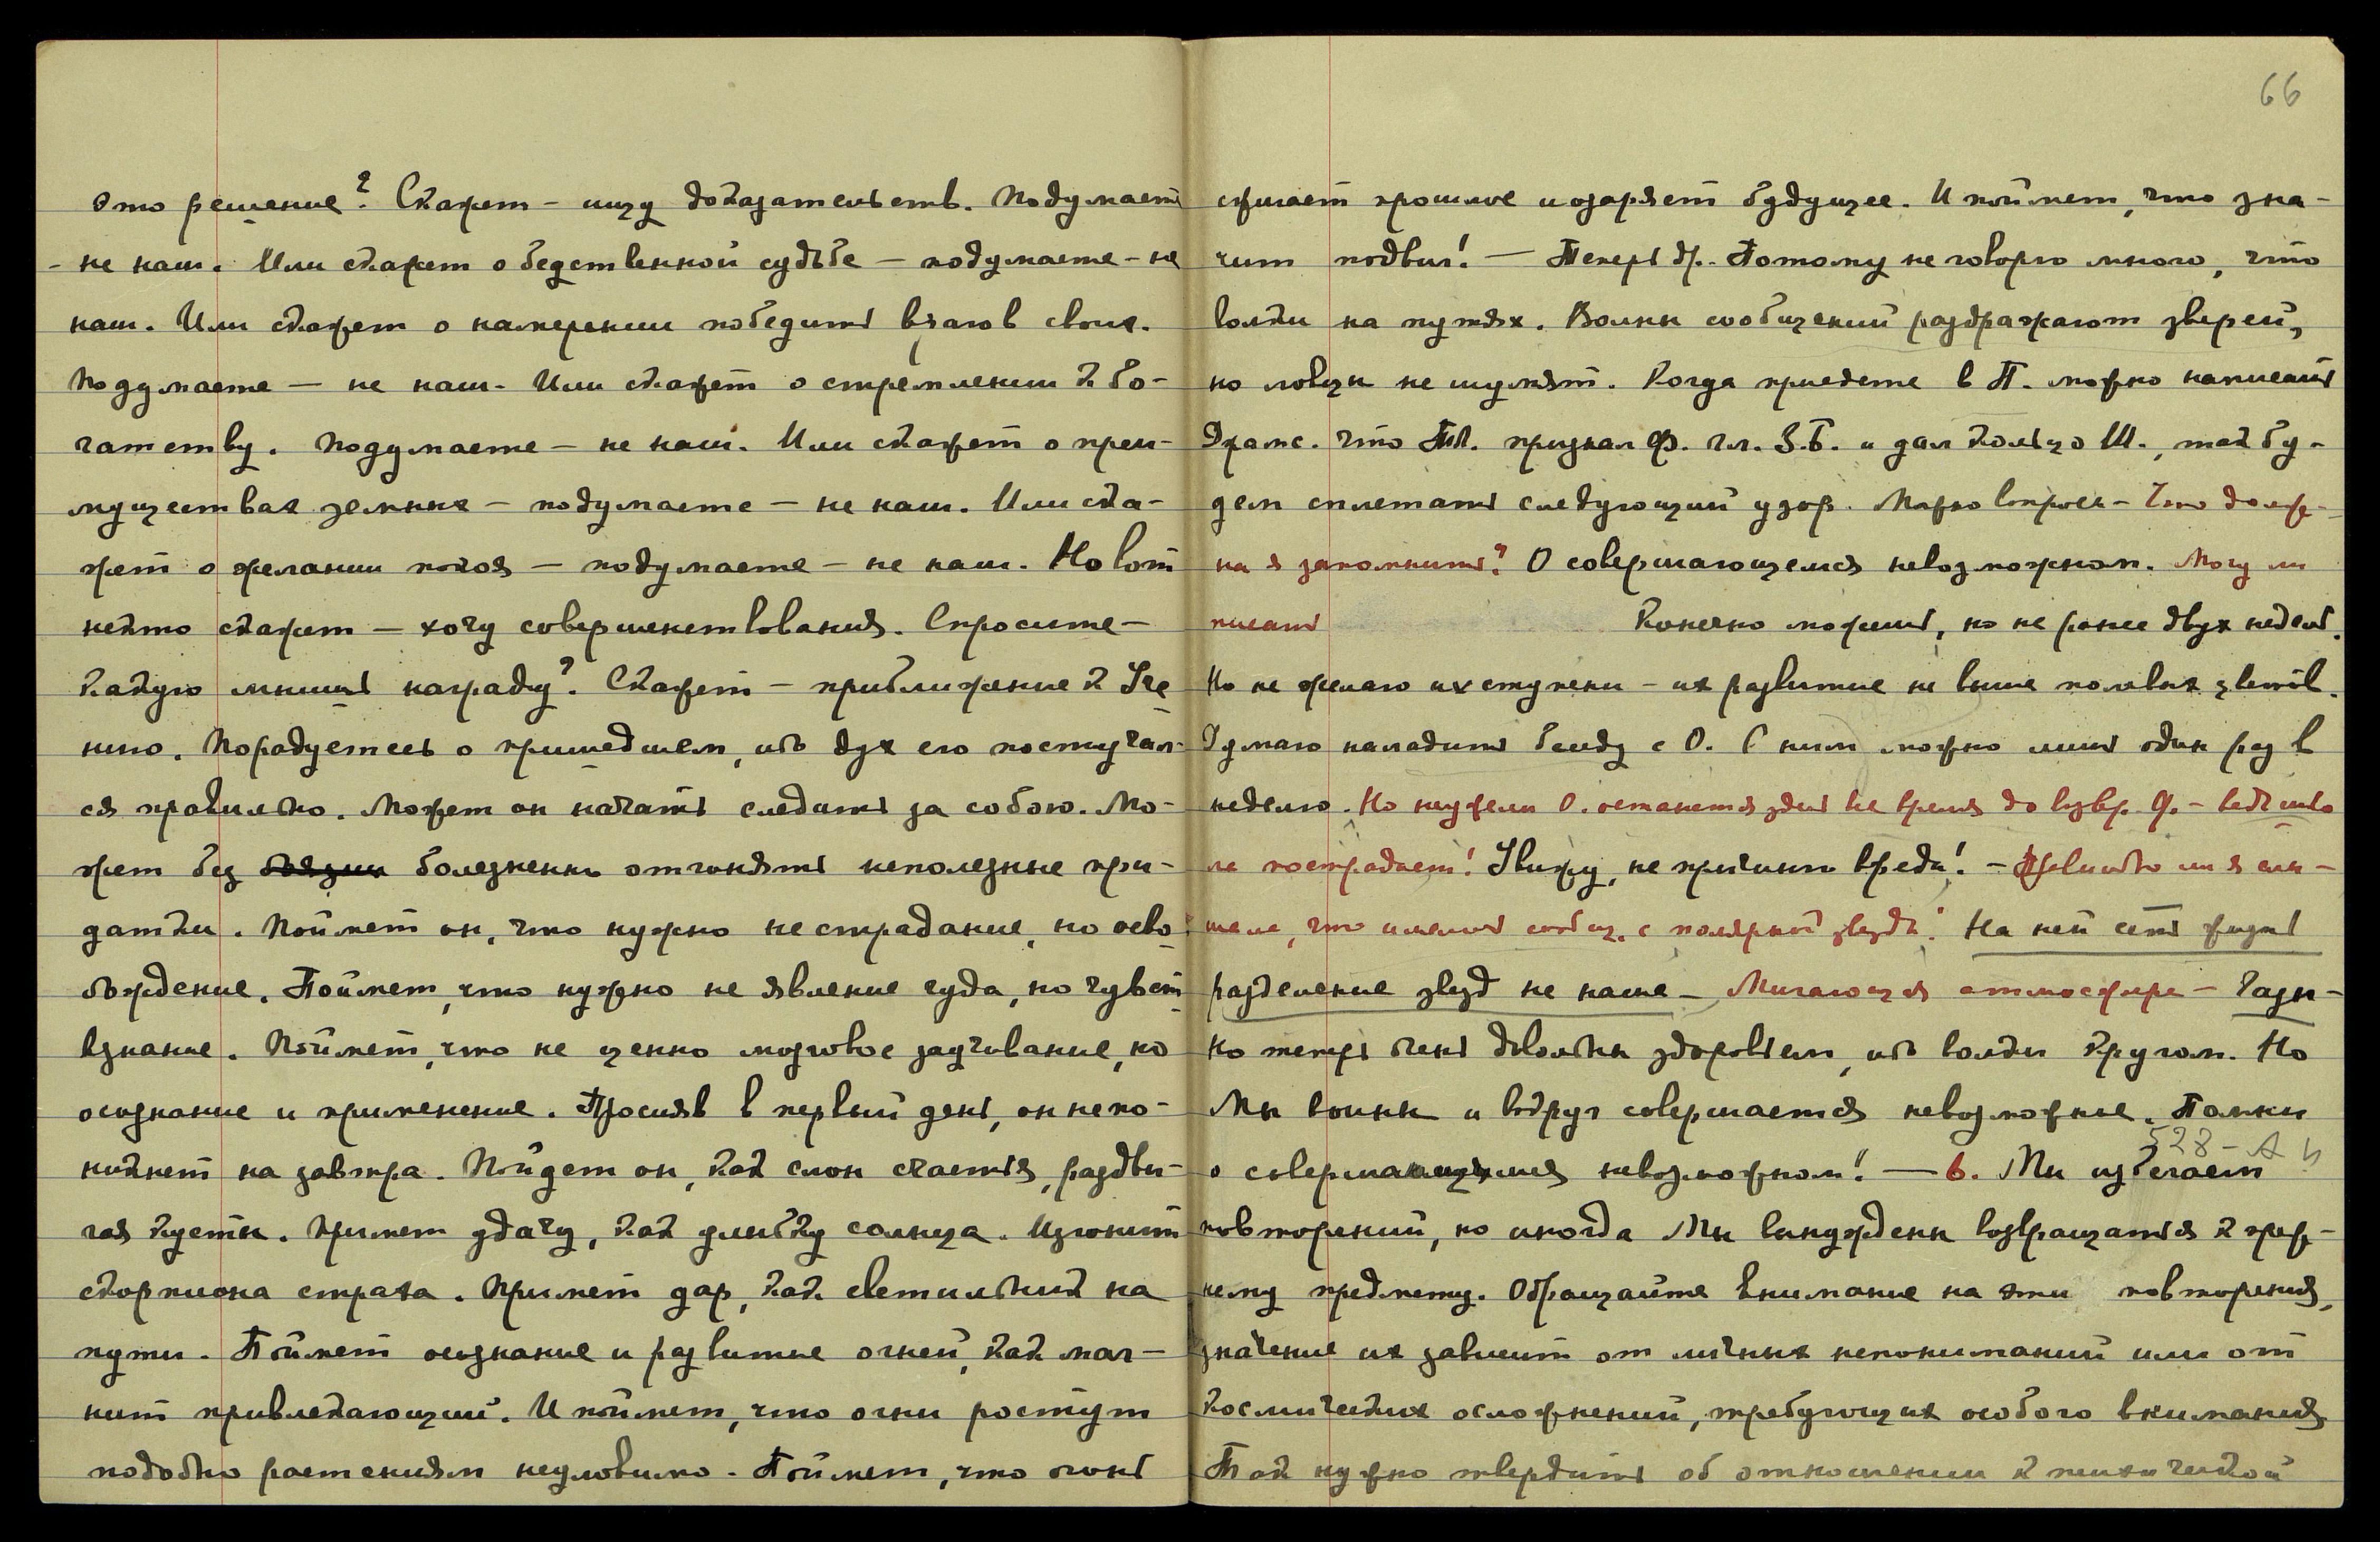 это решение? Скажет – ищу доказательств. Подумаете
- не наш. Или скажет о бедственной судьбе – подумаете – не
наш. Или скажет о намерении победить врагов своих.
Подумаете – не наш. Или скажет о стремлении к бо-
гатству. Подумаете – не наш. Или скажет о преи-
муществах земных – подумаете – не наш. Или ска-
жет о желании покоя – подумаете – не наш. Но вот
некто скажет – хочу совершенствования. Спросите –
какую мнишь награду? Скажет – приближение к Уче
нию. Порадуетесь о пришедшем, ибо дух его постучал-
ся правильно. Может он начать следить за собою. Мо-
жет без боязни болезненно отгонять неполезные при-
датки. Поймет он, что нужно не страдание, но осво-
бождение. Поймет, что нужно не явление чуда, но чувст
взнание. Поймет, что не ценно мозговое заучивание, но
осознание и применение. Просияв в первый день, он непо-
никнет на завтра. Пойдет он, как слон счастья, раздви-
гая кусты. Примет удачу, как улыбку солнца. Изгонит
скорпиона страха. Примет дар, как светильник на
пути. Поймет осознание и развитие огней, как маг-
нит привлекающий. И поймет, что огни ростут
подобно растениям неуловимо. Поймет, что огонь
66
сжигает прошлое и озаряет будущее. И поймет, что зна-
чит подвиг! – Теперь др. Потому не говорю много, что
волки на путях. Волны сообщений раздражают зверей,
но ловцы не шумят. Когда приедете в П. можно написать
что Т.Л. признал Ф. гл. З.Б. и дал кольцо Ш., так бу-
дем сплетать следующий узор. Можно вопросы – Что долж-
на я запомнить? О совершающемся невозможном. Могу ли
писать Конечно можешь, но не ранее двух недель.
Но не желаю их ступени – их развитие не выше полевых цветов.
Думаю наладить беседу с О. С ним можно лишь один раз в
неделю. Но неужели О. останется здесь все время до возвр. Ф. – ведь
не пострадает! Увижу, не причиню вреда! – Правильно ли я слы-
шала, что имеешь сообщ. с полярной звезды? На ней есть жизнь
разделение звезд не наше – Мигающая атмосфера – Газы –
Но теперь очень довольны здоровьем, ибо волки кругом. Но
Мы воины и вдруг совершается невозможное. Помни
о совершающемся невозможном! – 6. Мы избегаем
528 – А
повторений, но иногда Мы вынуждены возвращаться к преж-
нему предмету. Обращайте внимание на эти повторения,
значение их зависит от личных непониманий или от
космических осложнений, требующих особого внимания
Так нужно твердить об отношении к психической